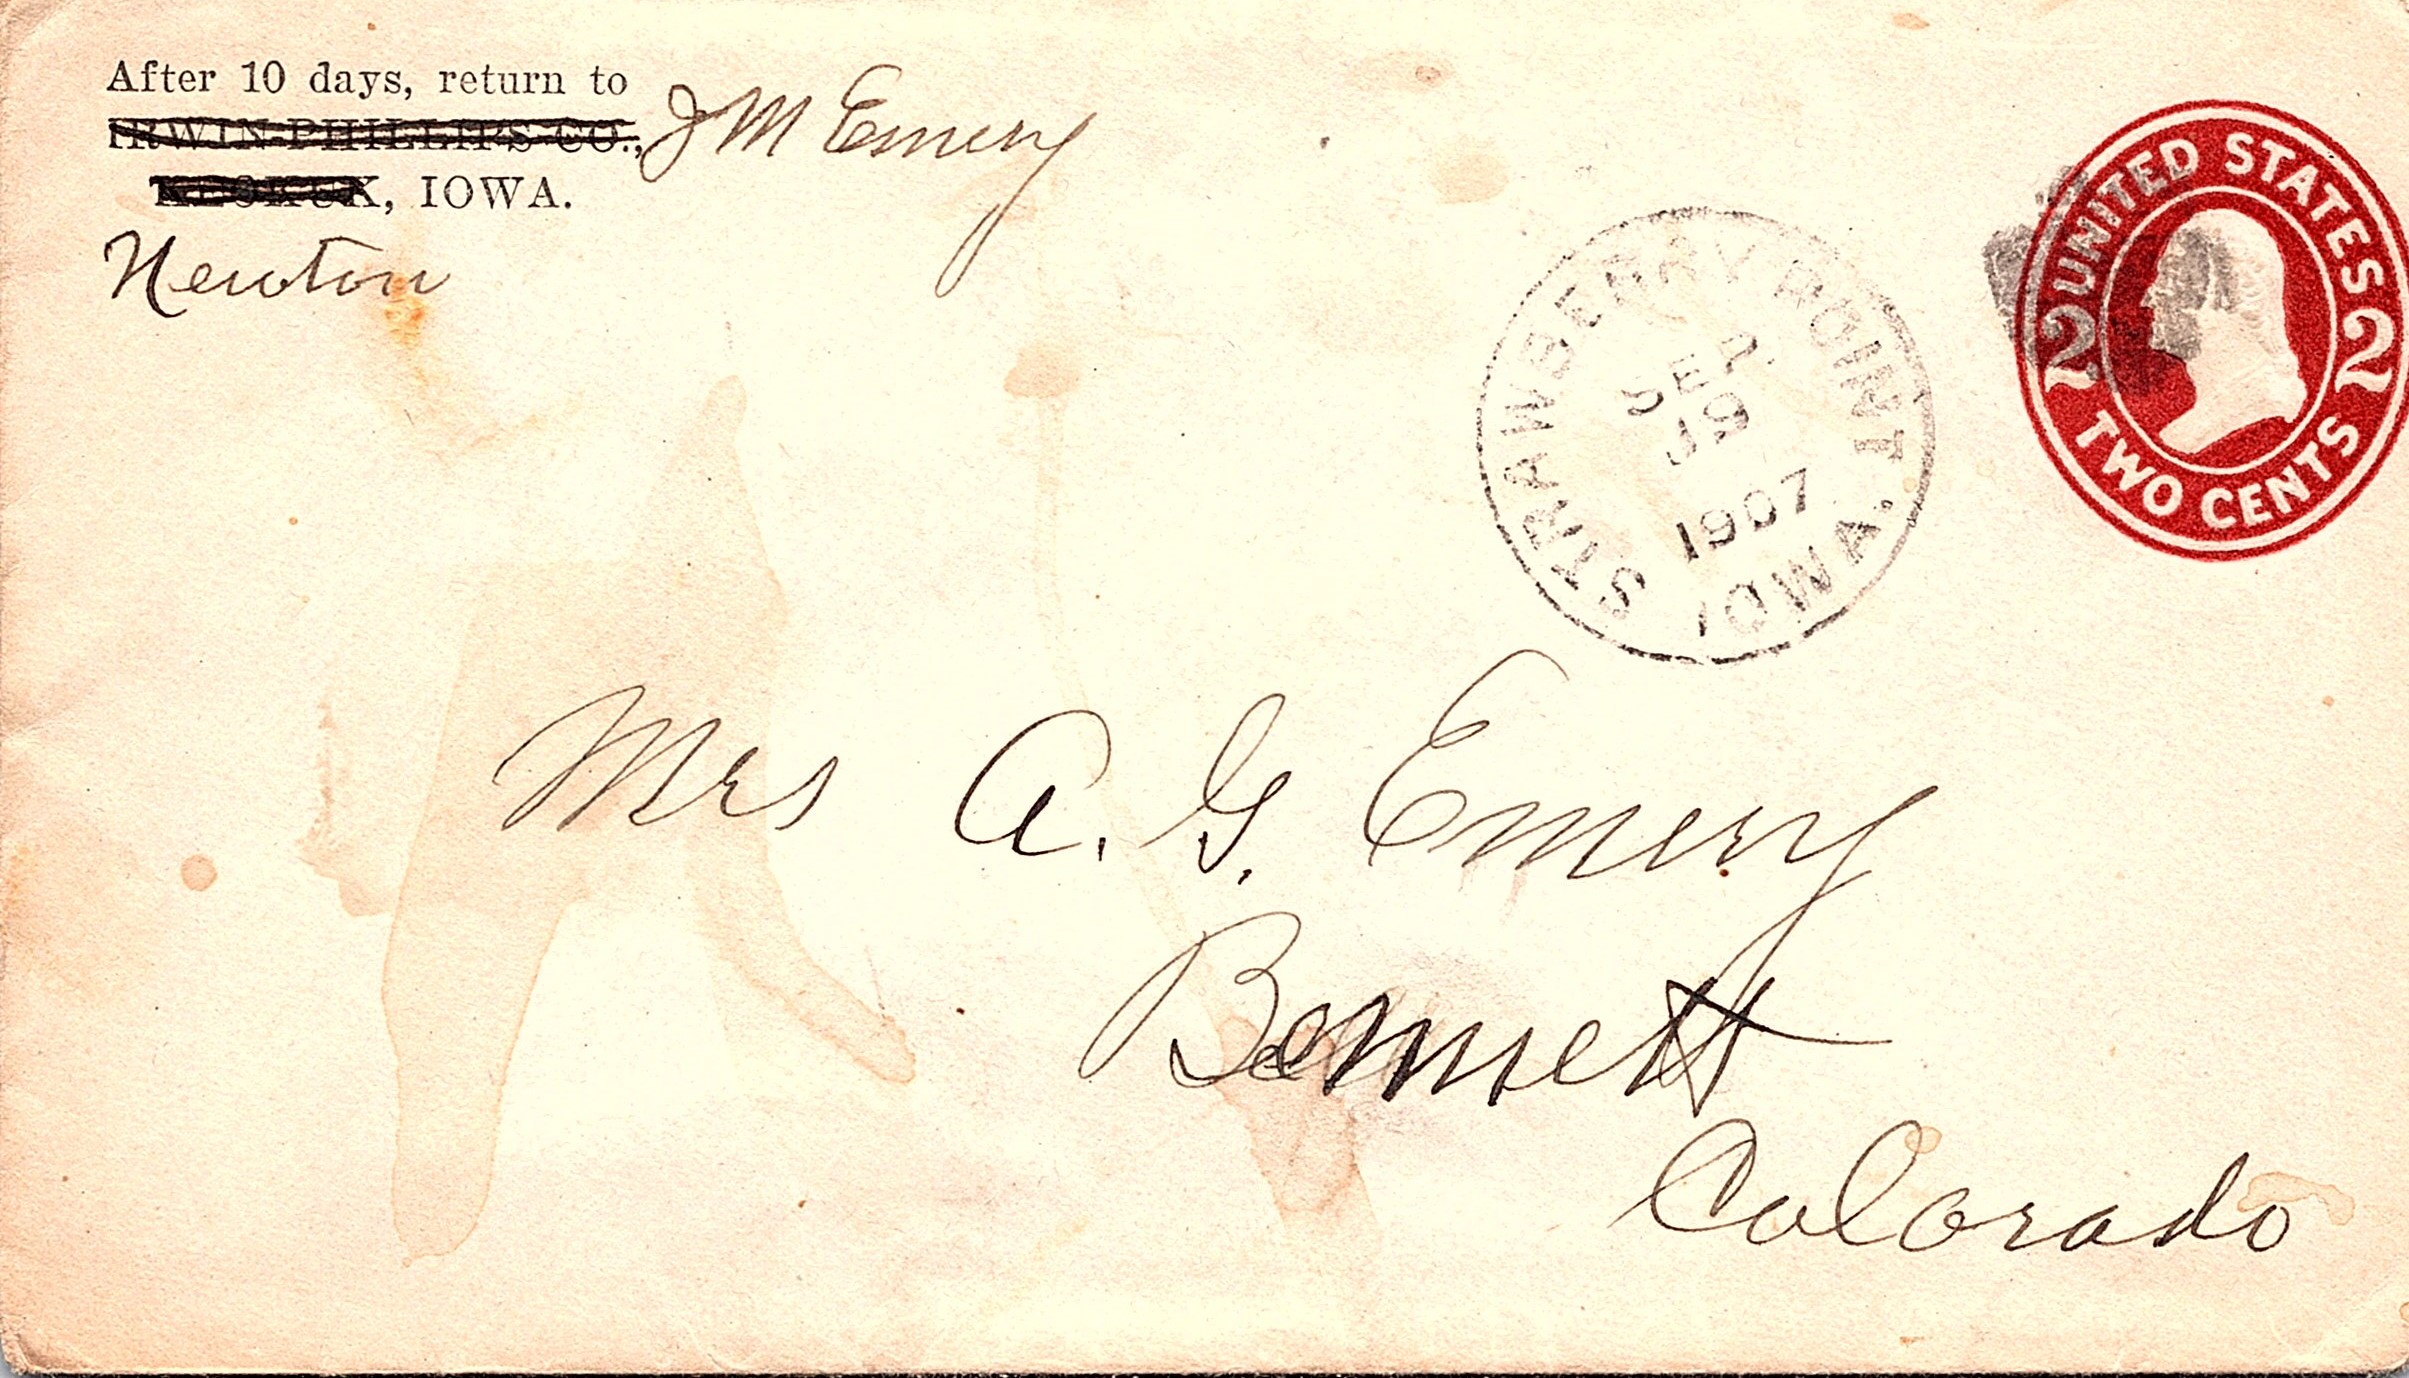 After 10 days, return to
IRWIN-PHILLIPS CO., J M Emery
KEOKUK, IOWA.
Newton
UNITED STATES
2 2
TWO CENTS
STRAWBERRY POINT
SEP
19
1907
IOWA.
Mrs A. G. Emery
Bennett
Colorado